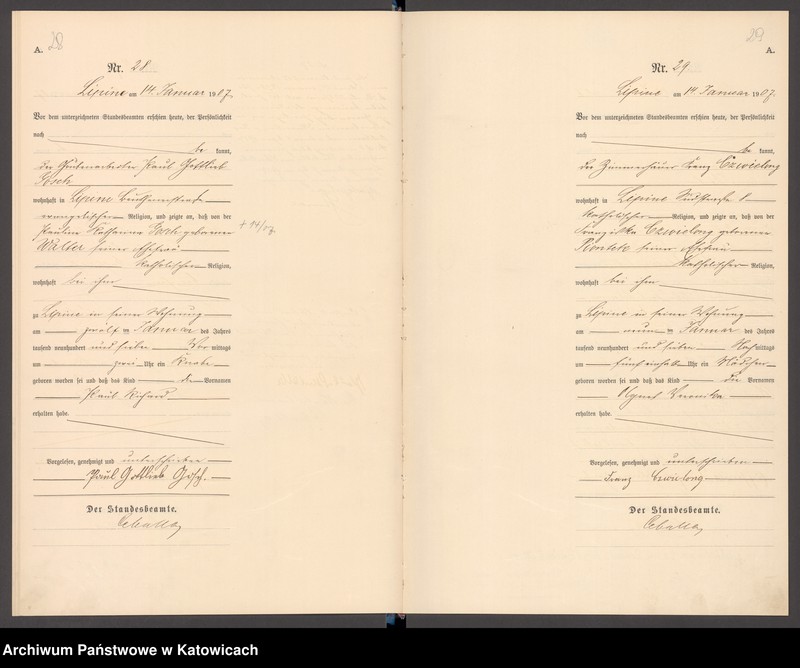 28
A.
Nr. 28
Lipine am 14. Januar 1907.
Vor dem unterzeichneten Standesbeamten erschien heute, der Persönlichkeit
nach
be kannt,
der Paul Gottlieb
Gosch
wohnhaft in Lipine Beuthenerstraße
evangelischer Religion, und zeigte an, daß von der
Pauline Katharina Gosch geborenen
Walter seiner Ehefrau
katholischer Religion,
wohnhaft bei ihm
zu Lipine in seiner Wohnung
am zwölf ten Januar des Jahres
tausend neunhundert und sieben Vor mittags
um zwei Uhr ein Knabe
geboren worden sei und daß das Kind die Vornamen
Paul Richard
erhalten habe.
Vorgelesen, genehmigt und unterschrieben
Paul Gottlieb Gosch.
Der Standesbeamte.
29
A.
Nr. 29
Lipine am 14. Januar 1907.
Vor dem unterzeichneten Standesbeamten erschien heute, der Persönlichkeit
nach
be kannt,
der Zimmerhäuer Franz Czwielong
wohnhaft in Lipine Südstraße
katholischer Religion, und zeigte an, daß von der
Franziska Czwielong geborenen
Piontek seiner Ehefrau
katholischer Religion,
wohnhaft bei ihm
zu Lipine in seiner Wohnung
am neun ten Januar des Jahres
tausend neunhundert und sieben Nach mittags
um fünfeinhalb Uhr ein Mädchen
geboren worden sei und daß das Kind die Vornamen
Agnes Veronika
erhalten habe.
Vorgelesen, genehmigt und unterschrieben
Franz Czwielong
Der Standesbeamte.
Archiwum Państwowe w Katowicach